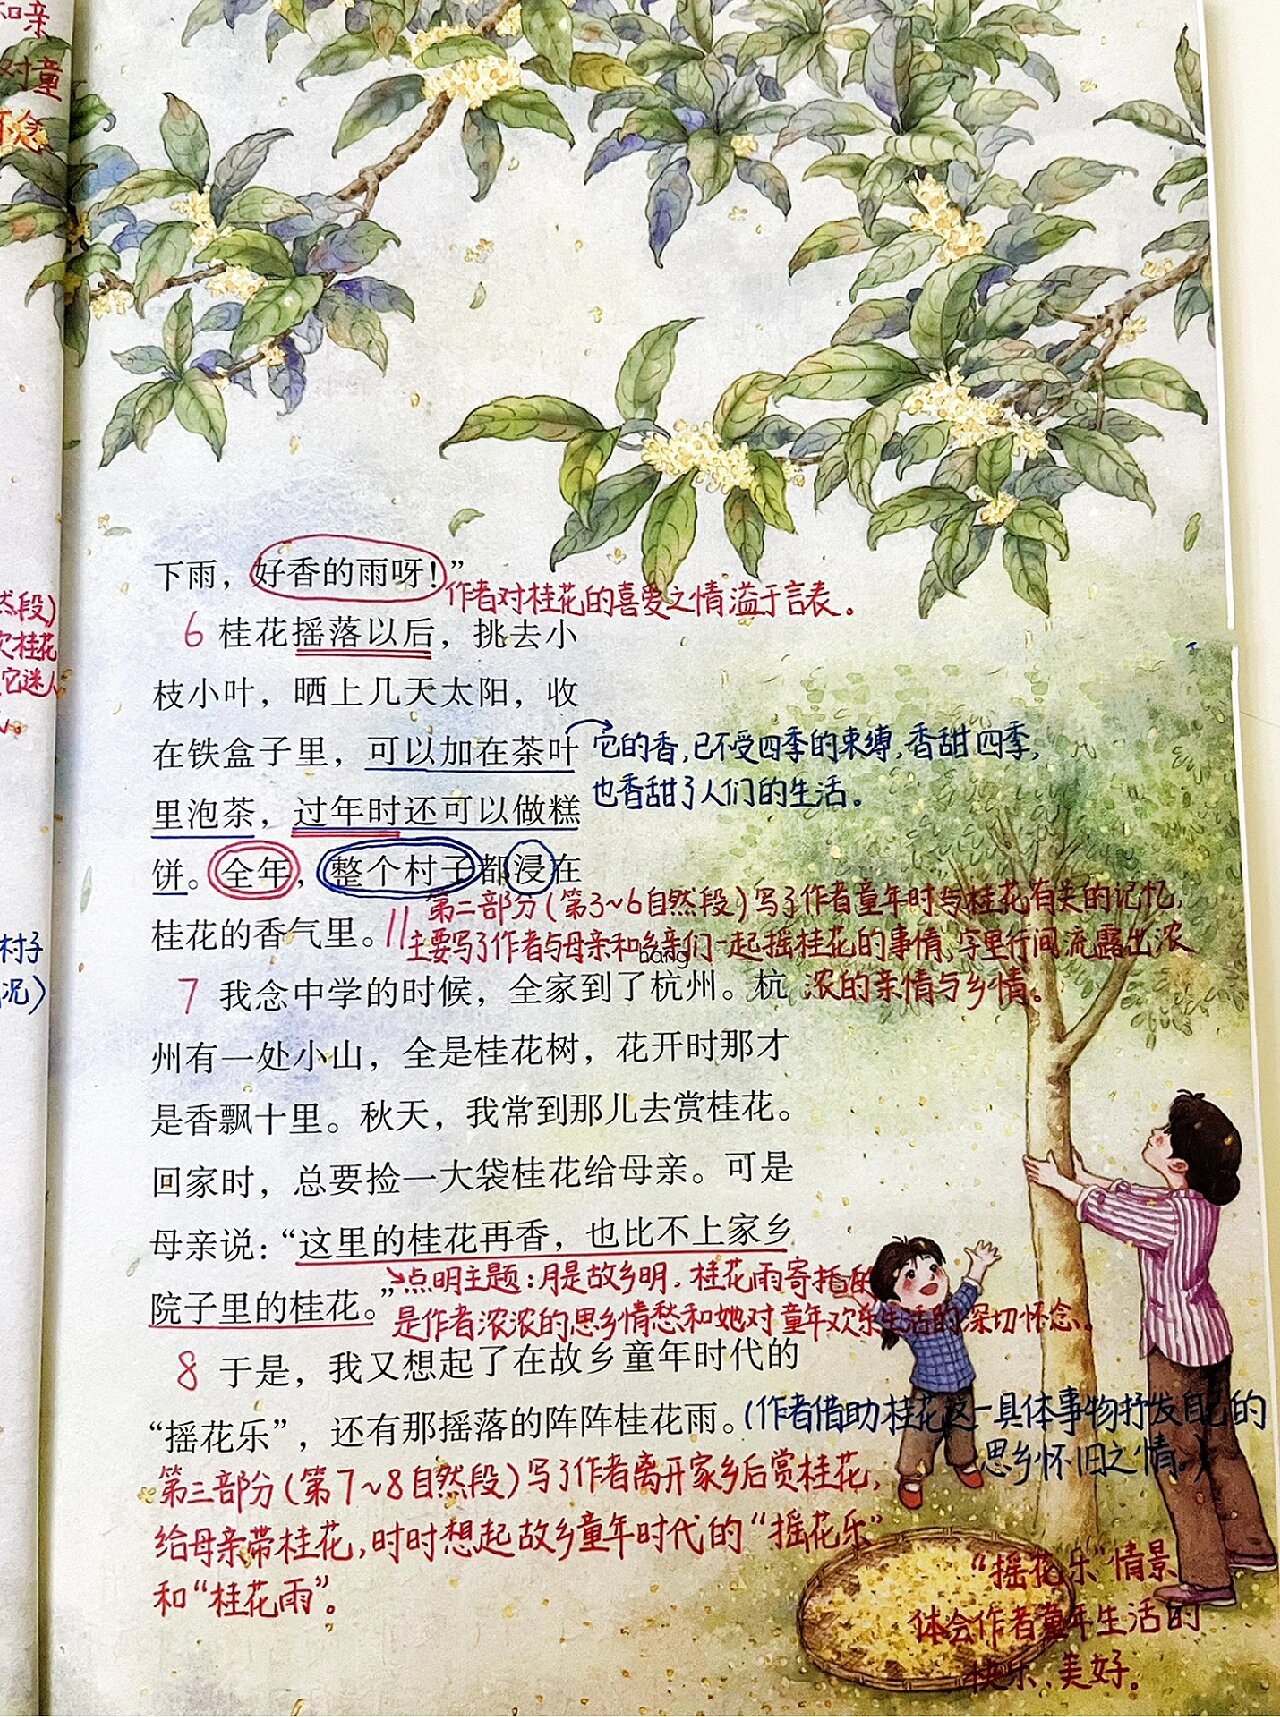 和亲
对童
怀念
下雨，好香的雨呀！”
作者对桂花的喜爱之情溢于言表。
然段）
欠桂花
它迷人
村子
况）
6 桂花摇落以后，挑去小
枝小叶，晒上几天太阳，收
在铁盒子里，可以加在茶叶
它的香，已不受四季的束缚，香甜四季，
也香甜了人们的生活。
里泡茶，过年时还可以做糕
饼。全年，整个村子都浸在
桂花的香气里。
第二部分（第3~6自然段）写了作者童年时与桂花有关的记忆，
主要写了作者与母亲和乡亲们一起摇桂花的事情，字里行间流露出浓
浓的亲情与乡情。
háng
7 我念中学的时候，全家到了杭州。杭
州有一处小山，全是桂花树，花开时那才
是香飘十里。秋天，我常到那儿去赏桂花。
回家时，总要捡一大袋桂花给母亲。可是
母亲说：“这里的桂花再香，也比不上家乡
院子里的桂花。”
点明主题：月是故乡明．桂花雨寄托的
是作者浓浓的思乡情愁和她对童年欢乐生活的深切怀念。
8 于是，我又想起了在故乡童年时代的
“摇花乐”，还有那摇落的阵阵桂花雨。
（作者借助桂花这一具体事物抒发自己的
思乡怀旧之情。）
第三部分（第7~8自然段）写了作者离开家乡后赏桂花，
给母亲带桂花，时时想起故乡童年时代的“摇花乐”
和“桂花雨”。
“摇花乐”情景
体会作者童年生活的
快乐、美好。